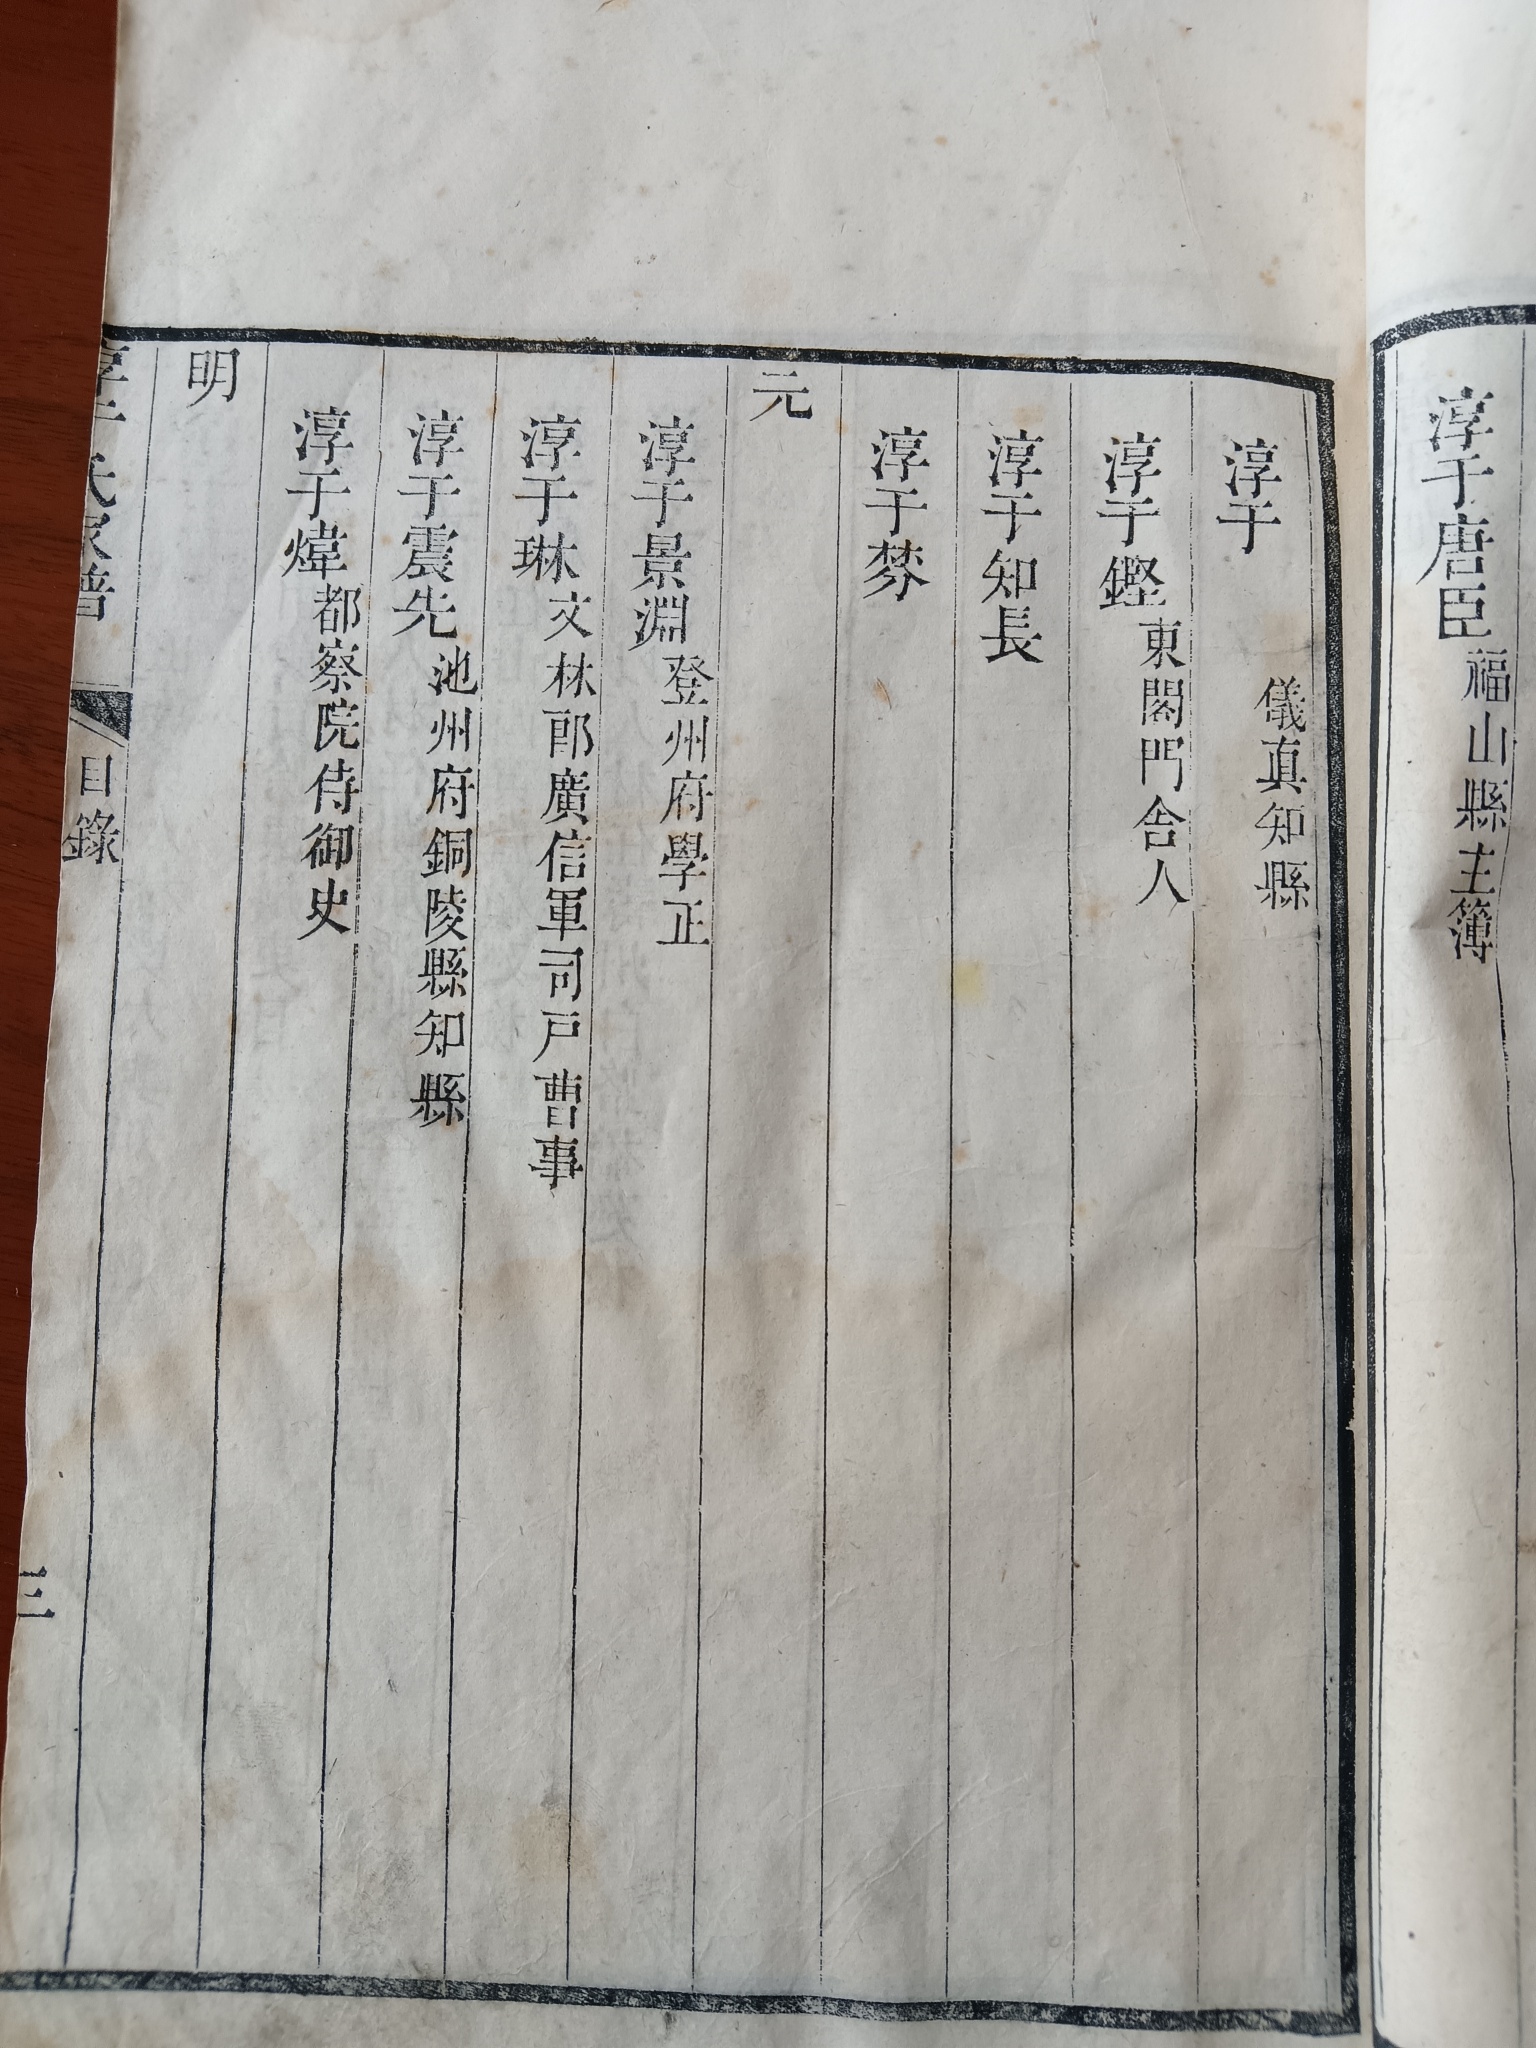 淳于唐臣 福山縣主簿
淳于 儀真知縣
淳于鏗 東閣門舍人
淳于知長
淳于棼
元
淳于景淵 登州府學正
淳于琳 文林郎廣信軍司戸曹事
淳于震先 池州府銅陵縣知縣
淳于煒 都察院侍御史
明
淳于氏家譜 目錄 三